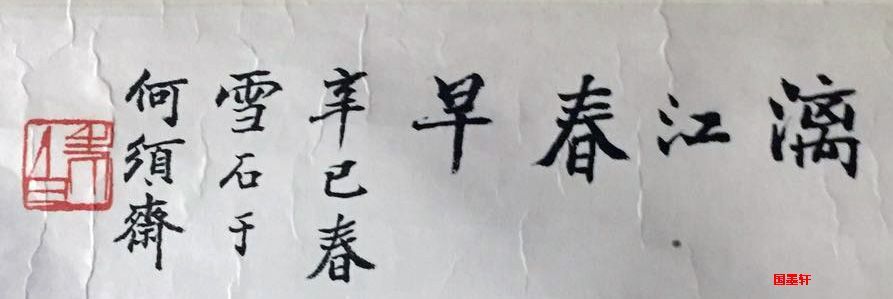 漓江春早
辛已春
雪石于
何須齋
国墨轩